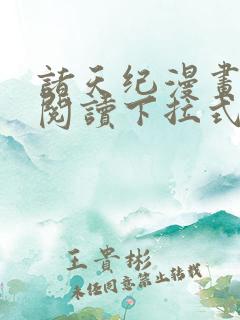 諸天纪漫畫
閱讀下拉式
王貴彬
未经同意禁止转载